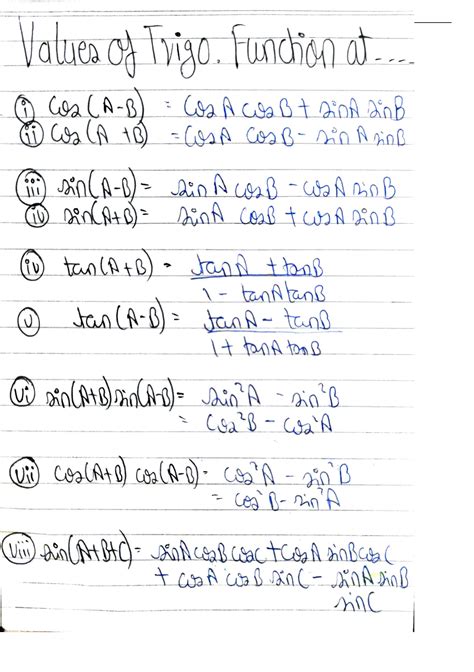 Values of Trigo. Function at ....
(i) cos(A-B) = cosA cosB + sinA sinB
(ii) cos(A +B) = cosA cosB - sinA sinB
(iii) sin(A-B) = sinA cosB - cosA sinB
(iv) sin(A+B) = sinA cosB + cosA sinB
(iv) tan(A+B) = tanA + tanB
1 - tanAtanB
(v) tan(A-B) = tanA - tanB
1 + tanAtanB
(vi) sin(A+B)sin(A-B) = sin²A - sin²B
= cos²B - cos²A
(vii) cos(A+B) cos(A-B) - cos²A - sin²B
= cos²B - sin²A
(viii) sin(A+B+C) = sinAcosBcosC + cosA sinBcosC
+ cosA cosB sinC - sinA sinB
sinC